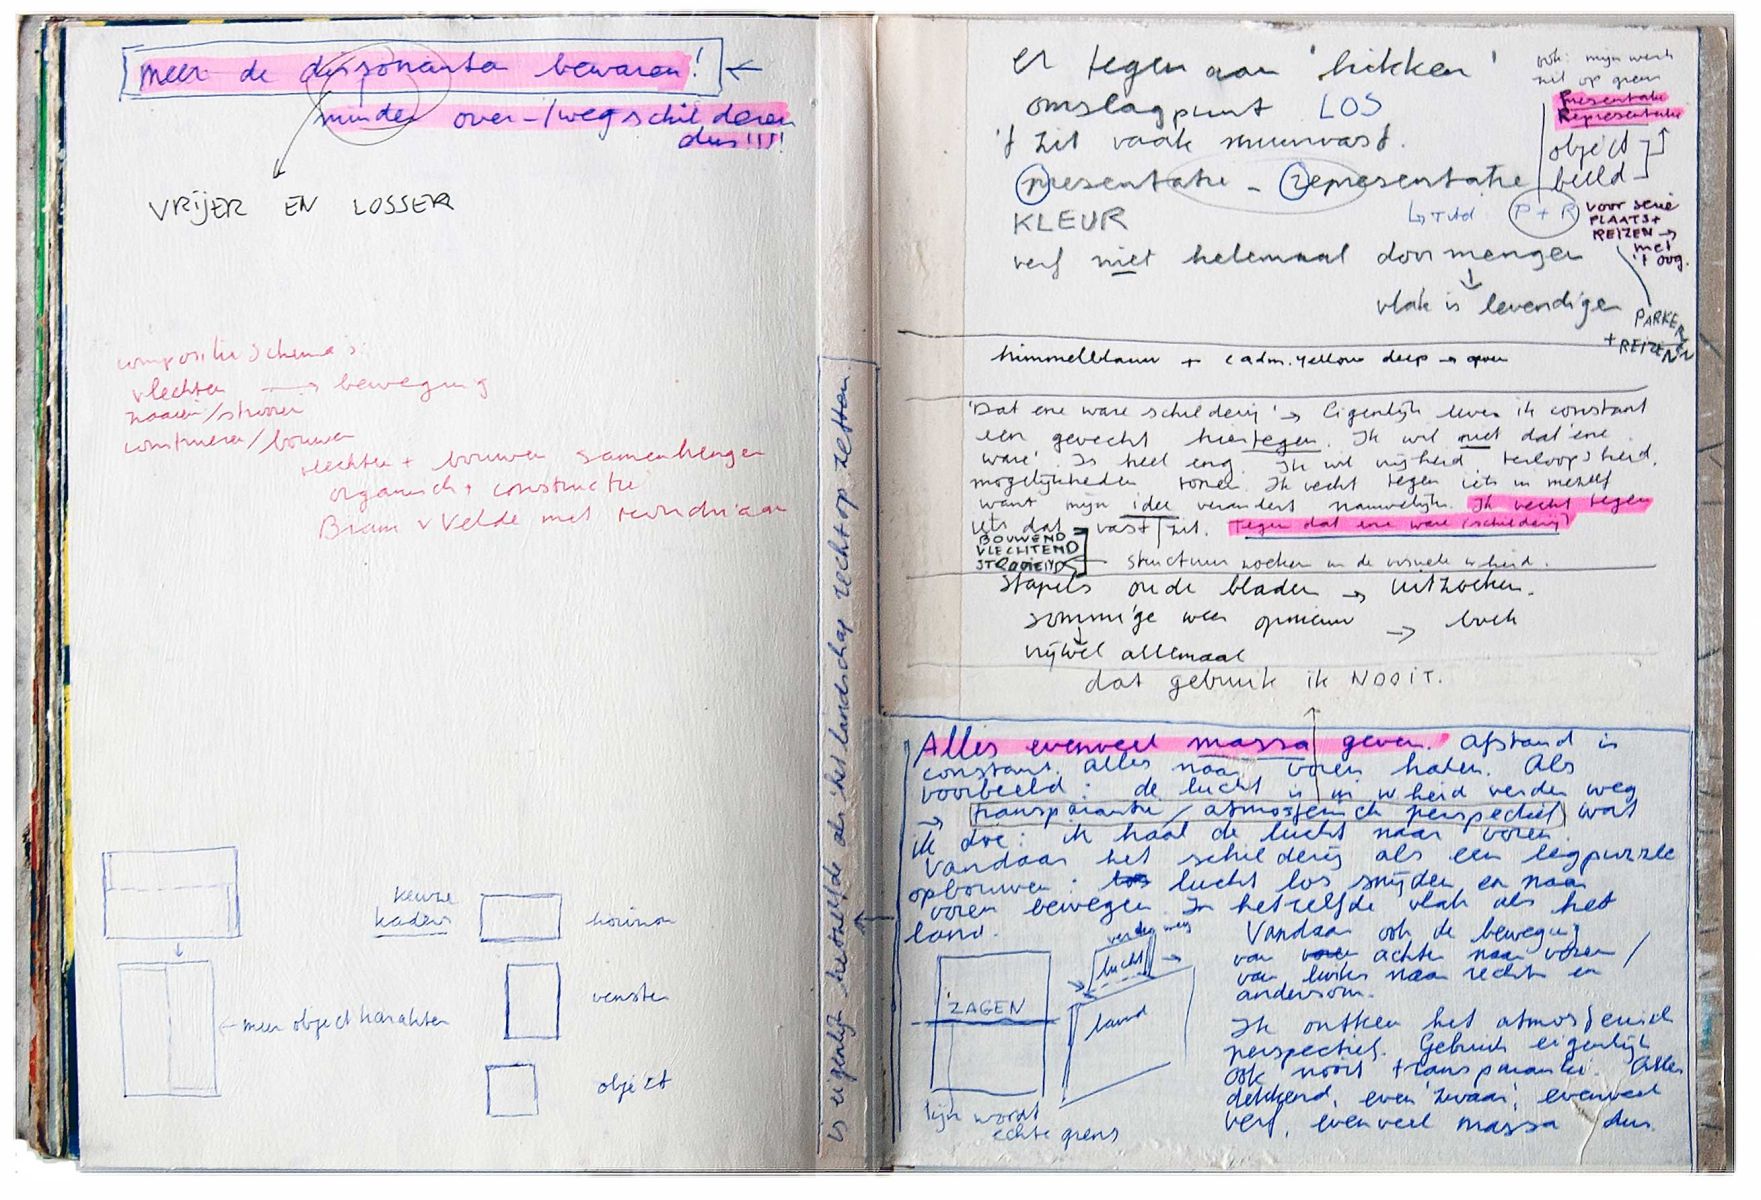 meer de dissonanten bewaren! ←
minder over-/wegschilderen
dus!!!!
VRIJER EN LOSSER
compositieschema's:
vlechten → beweging
naaien/strooien
construeren/bouwen
vlechten + bouwen samenbrengen
organisch + constructie
Bram v Velde met
keuze
kaders
horizon
venster
object
← meer objectkarakter
is eigenlijk hetzelfde als het landschap rechtop zetten.
er tegen aan 'hikken'
omslagpunt LOS
't zit vaak muurvast.
presentatie - representatie
KLEUR
verf niet helemaal doormengen
↓
vlak is levendiger
ook: mijn werk
zit op grens
Presentatie
Representatie
object
beeld
P + R
voor serie
PLAATS+
REIZEN →
met
't oog.
PARKEREN
+ REIZEN
himmelblauw + cadm. yellow deep →
'Dat ene ware schilderij' → Eigenlijk lever ik constant
een gevecht hiertegen. Ik wil niet dat 'ene
ware'. Is heel eng. Ik wil vrijheid, terloopsheid,
mogelijkheden tonen. Ik vecht tegen iets in mezelf
want mijn idee verandert nauwelijks. Ik vecht tegen
iets dat vast zit. Tegen dat ene ware (schilderij)
BOUWEND
VLECHTEND
STROOIEND
structuur zoeken in de visuele w.heid.
Stapels oude bladen → uitzoeken.
sommige weer opnieuw → boek
↓
vrijwel allemaal
dat gebruik ik NOOIT.
Alles evenveel massa geven. Afstand is
constant. Alles naar voren halen. Als
voorbeeld: de lucht is in w.heid verder weg
→ transparantie/atmosferisch perspectief wat
ik doe: ik haal de lucht naar voren.
Vandaar het schilderij als een legpuzzle
opbouwen: lucht los snijden en naar
voren bewegen. In hetzelfde vlak als het
land.
Vandaar ook de beweging
van achter naar voren /
van links naar rechts en
andersom.
Ik ontken het atmosferisch
perspectief. Gebruik eigenlijk
ook nooit transparantie. Alles
dekkend, even 'zwaar', evenveel
verf, evenveel massa dus.
verder weg
lucht
land
ZAGEN
lijn wordt
echte grens